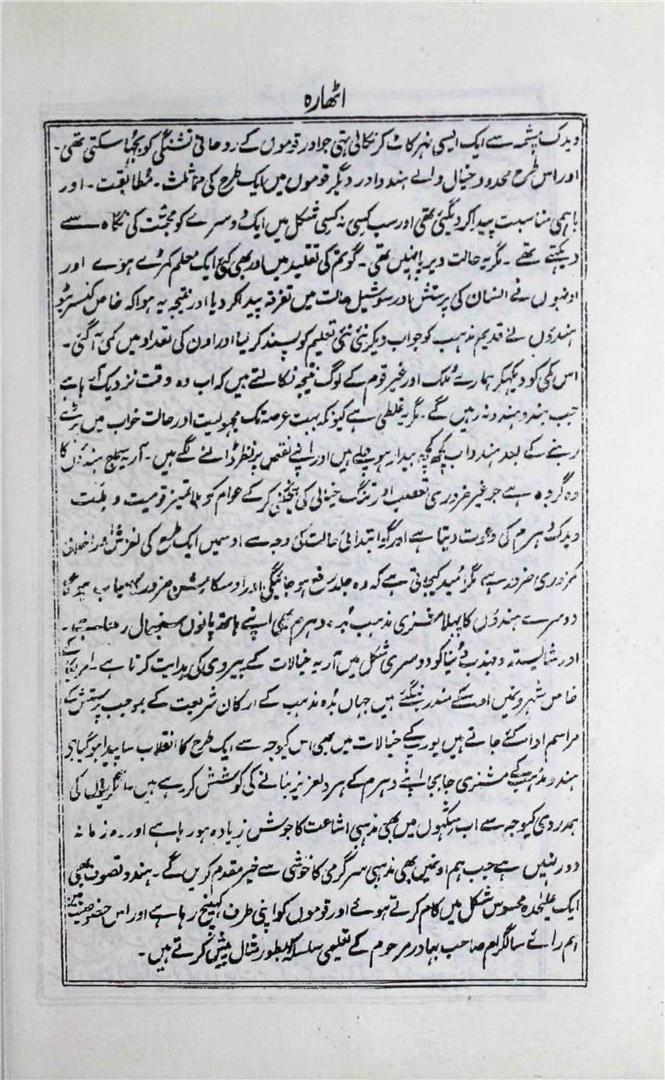 اٹھارہ
ویدک چشمہ سے ایک ایسی نہر کاٹ کر نکالی تھی جو اور قوموں کے روحانی تشنگی کو بجھا سکتی تھی۔
اور اس طرح محدود خیال والے ہندو اور دیگر قوموں میں ایک طرح کی مماثلت۔ مطابقت۔ اور
باہمی مناسبت پیدا کر دی گئی تھی اور سب کسی نہ کسی شکل میں ایک دوسرے کو محبت کی نگاہ سے
دیکھتے تھے۔ مگر یہ حالت دیرپا نہیں تھی۔ گوتم کی تقلید میں اور بھی کئی ایک معلم کھڑے ہوے اور
اونہوں نے انسان کی پرستش اور سوشیل حالت میں تفرقہ پیدا کر دیا اور نتیجہ یہ ہوا کہ خاص کنسرویٹو
ہندؤں نے قدیم مذہب کو جواب دیکر نئی نئی تعلیم کو پسند کر لیا اور اون کی تعداد میں کمی آ گئی۔
اس کمی کو دیکھکر ہمارے ملک اور غیر قوم کے لوگ نتیجہ نکالتے ہیں کہ اب وہ وقت نزدیک آ رہا ہے
جب ہندو ہندو نہ رہیں گے۔ مگر یہ غلطی ہے کیونکہ بہت عرصہ تک مجہولیت اور حالت خواب میں پڑے
رہنے کے بعد ہندو اب کچھ کچھ بیدار ہو چلے ہیں اور اپنے نقص پر نظر ڈالنے لگے ہیں۔ آریہ سماج ہندؤں کا
وہ گروہ ہے جو غیر ضروری تعصب اور تنگ خیالی کی بیخکنی کر کے عوام کو بلا تمیز قومیت و ملت
ویدک دھرم کی دعوت دیتا ہے اور گو ابتدائی حالت کی وجہ سے اوسمیں ایک طرح کی لغزش اور اخلاقی
کمزوری ضرور ہے، مگر امید کیجاتی ہے کہ وہ جلد رفع ہو جائیگی اور اوسکا مشن ضرور کامیاب ہوگا
دوسرے ہندؤں کا پہلا مشنری مذہب بدھ دھرم بھی اپنے ہاتھ پانوں سنبھال رہا ہے۔
اور شایستہ و مہذب دنیا کو دوسری شکل میں آریہ خیالات کے پیروی کی ہدایت کرتا ہے۔ امریکا کے
خاص شہرونمیں اوسکے مندر بنگئے ہیں جہاں بدہ مذہب کے ارکان شریعت کے بموجب پرستش کے
مراسم ادا کئے جاتے ہیں یورپ کے خیالات میں بھی اس کیوجہ سے ایک طرح کا انقلاب سا پیدا ہو گیا ہے
ہندو مذہب کے مشنری جابجا اپنے دھرم کے ہردلعزیز بنانے کی کوشش کر رہے ہیں۔ انگریزوں کی
ہمدردی کیوجہ سے اب سکھوں میں بھی مذہبی اشاعت کا جوش زیادہ ہو رہا ہے اور وہ زمانہ
دور نہیں ہے جب ہم اونمیں بھی مذہبی سرگرمی کا خوشی سے خیر مقدم کریں گے۔ ہندو تصوف بھی
ایک علیحدہ محسوس شکل میں کام کرتے ہوئے اور قوموں کو اپنی طرف کھینچ رہا ہے اور اس خصوصیت میں
ہم رائے سالگرام صاحب بہادر مرحوم کے تعلیمی سلسلہ کو بطور مثال پیش کرتے ہیں۔